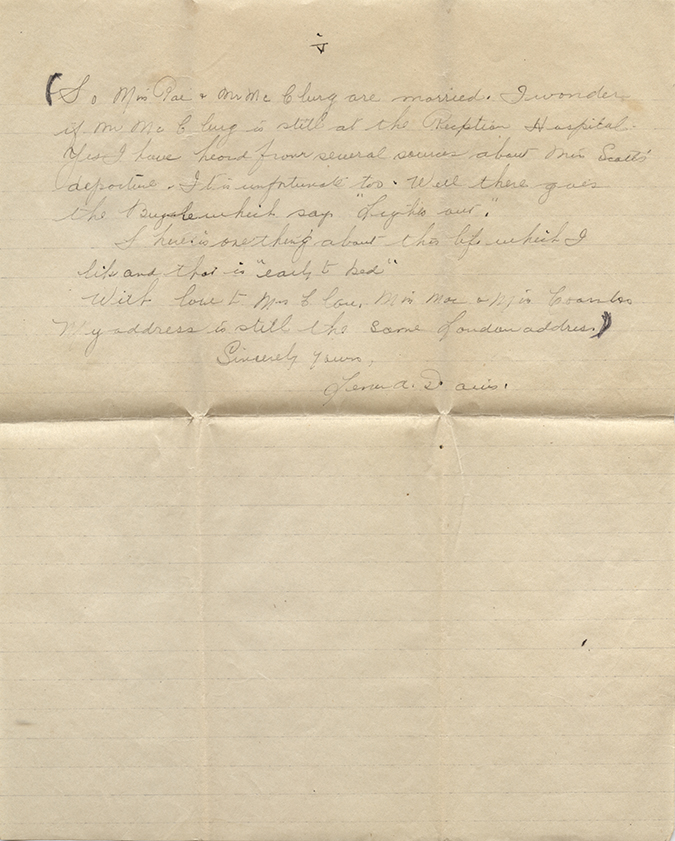 v
(So Miss Rae & Mr Mc Clurg are married. I wonder
if Mr Mc Clurg is still at the Reception Hospital.
Yes I have heard from several sources about Miss Scott's
departure. It is unfortunate too. Well there goes
the Bugle which says "Lights out".
There is one thing about this life which I
like and that is "early to bed"
With love to Miss Mae & Miss Coombs
My address is still the same London address.)
Sincerely Yours,
Lena A. Davis.